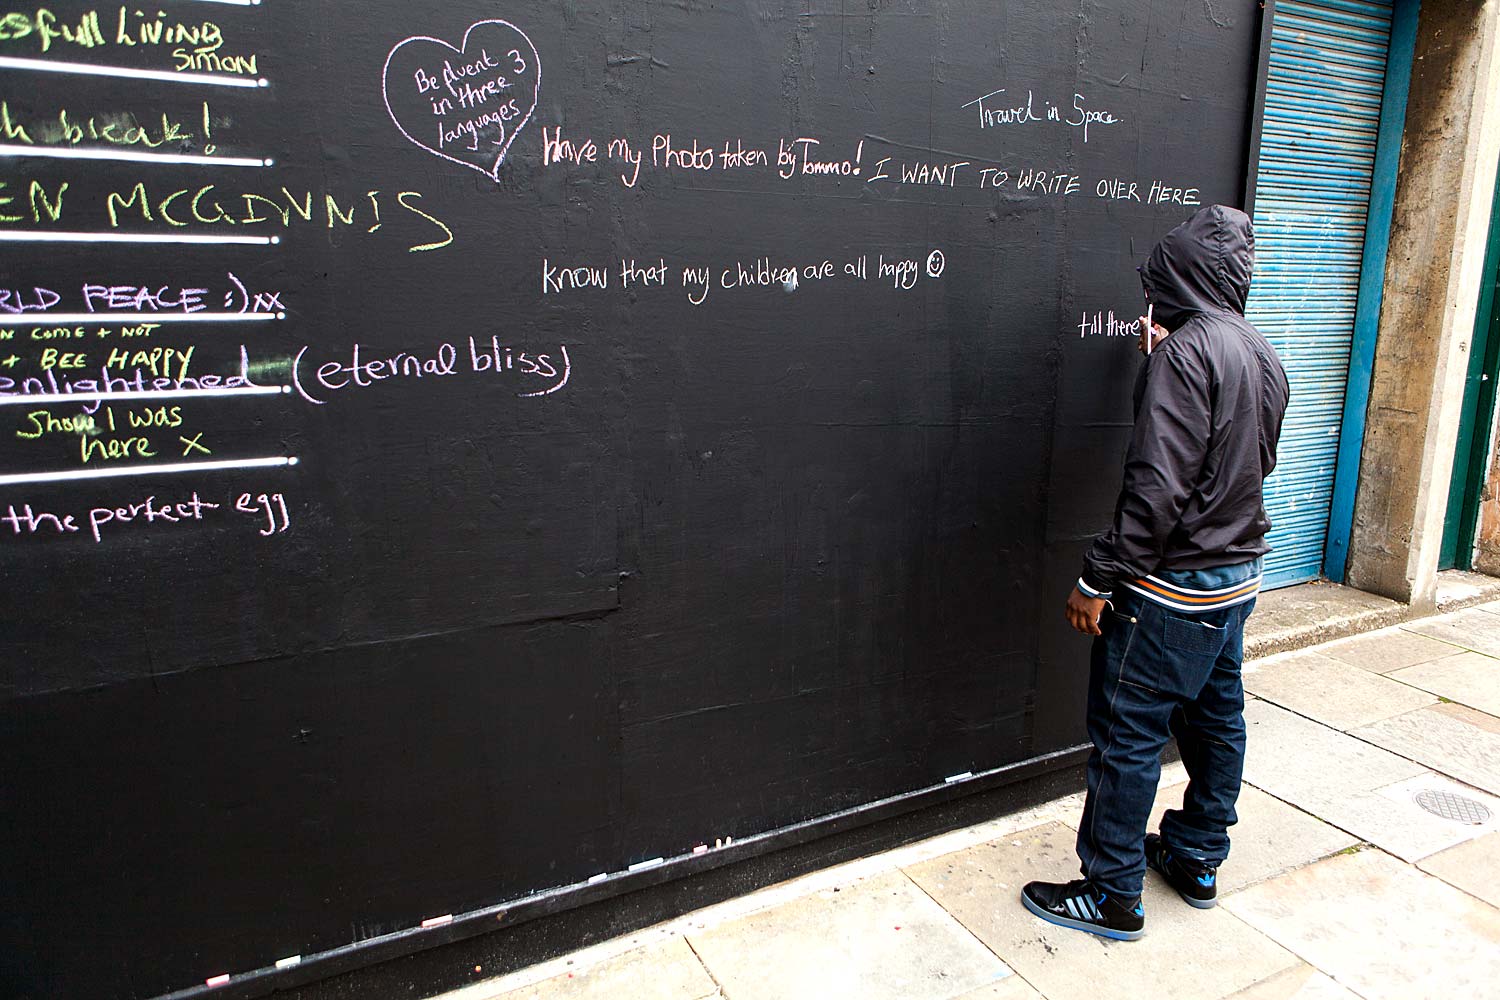 Living
Simon
break!
MCGINNIS
PEACE :) xx
COME + NOT
+ BEE HAPPY
enlightened (eternal bliss)
Show I was
here X
the perfect egg
Be fluent 3
in three
languages
Travel in Space.
Have my Photo taken by Tommo! I WANT TO WRITE OVER HERE
know that my children are all happy
till there